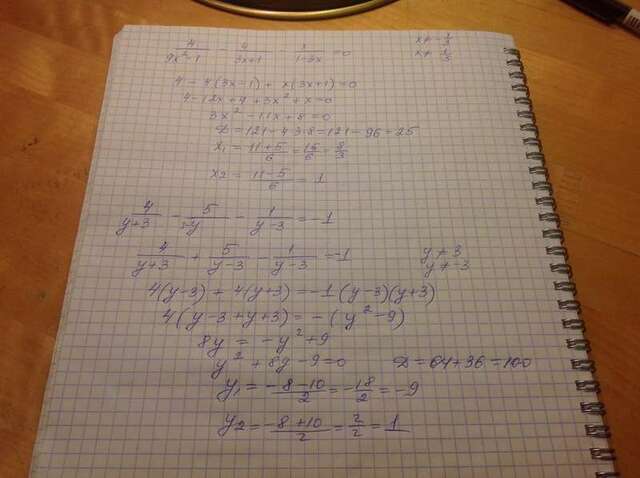 4/(9x²-1) - 4/(3x+1) - 1/(1-3x) = 0 x ≠ -1/3
x ≠ 1/3
4 - 4(3x-1) + x(3x+1) = 0
4 - 12x + 4 + 3x² + x = 0
3x² - 11x + 8 = 0
D = 121 - 4·3·8 = 121 - 96 = 25
x₁ = (11+5)/6 = 16/6 = 8/3
x₂ = (11-5)/6 = 1
4/(y+3) - 5/(3-y) - 1/(y-3) = -1
4/(y+3) + 5/(y-3) - 1/(y-3) = -1 y ≠ 3
y ≠ -3
4(y-3) + 4(y+3) = -1(y-3)(y+3)
4(y-3+y+3) = -(y²-9)
8y = -y² + 9
y² + 8y - 9 = 0 D = 64 + 36 = 100
y₁ = (-8-10)/2 = -18/2 = -9
y₂ = (-8+10)/2 = 2/2 = 1